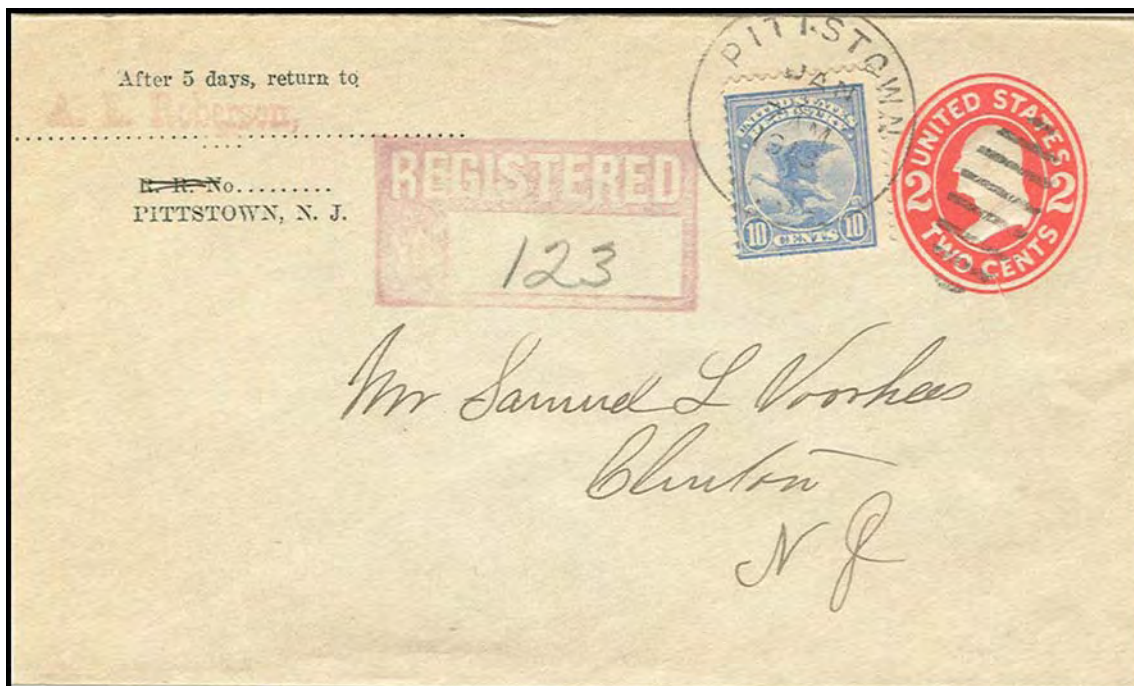 After 5 days, return to
A. L. Roberson,
R. R. No.........
PITTSTOWN, N. J.
REGISTERED
123
PITTSTOWN
JAN
UNITED STATES
REGISTRY
10 CENTS 10
UNITED STATES
2 2
TWO CENTS
Mr Samuel L Voorhees
Clinton
N J